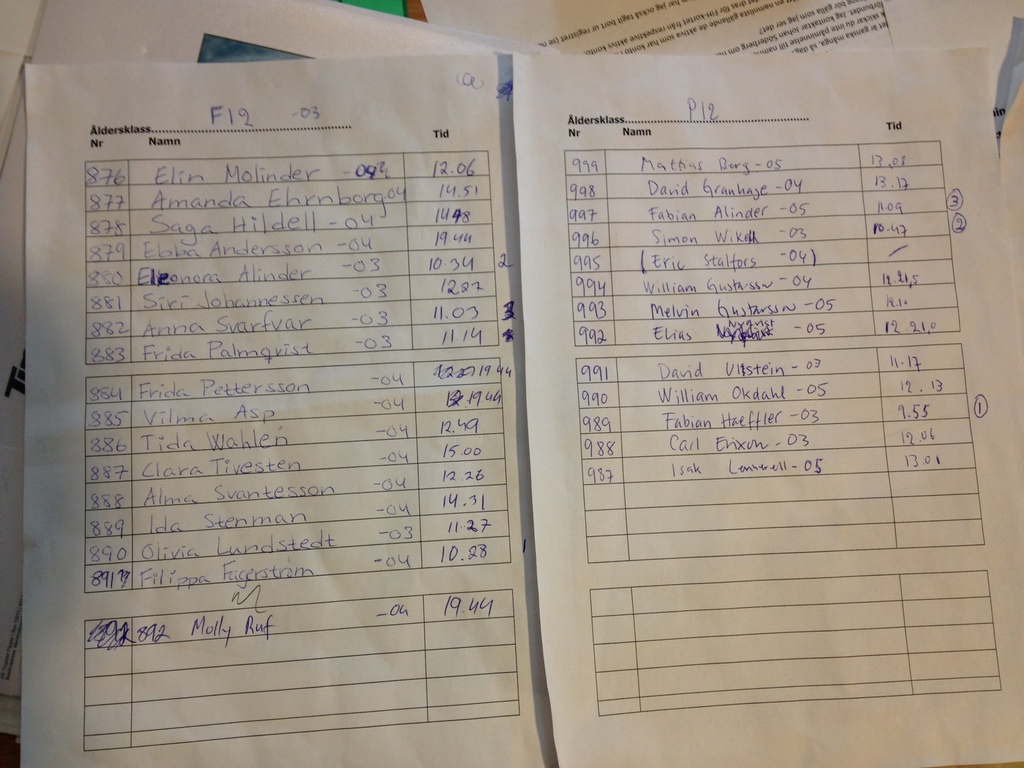 F12 -03
Åldersklass
Nr Namn Tid
876 Elin Molinder 12.06
877 Amanda Ehrnborg 04 14.51
878 Saga Hildell -04
879 Ebba Andersson -04 19.44
880 Eleonora Alinder -03 10.34 2
881 Siri Johannessen -03
882 Anna Svarfvar -03 11.03 3
883 Frida Palmqvist -03 11.14
884 Frida Pettersson -04 19 44
885 Vilma Asp -04 19.44
886 Tida Wahlén -04 12.49
887 Clara Tivesten -04 15.00
888 Alma Svantesson -04 12.26
889 Ida Stenman -04 14.31
890 Olivia Lundstedt -03 11.27
891 Filippa Fagerström -04 10.28 1
892 Molly Ruf -04 19.44
P12
Åldersklass
Nr Namn Tid
999 Mathias Berg -05 13.08
998 David Granhage -04 13.17
997 Fabian Alinder -05 11.09 3
996 Simon Wikell -03 10.47 2
995 (Eric Stalfors -04)
994 William Gustavsson -04 12.21,5
993 Melvin Gustavsson -05
992 Elias Nyqvist -05 12 21,0
991 David Ulfstein -03 11.17
990 William Okdahl -05 12.13
989 Fabian Haeffler -03 9.55 1
988 Carl Erixon -03 12.06
987 Isak Lennerell -05 13.01